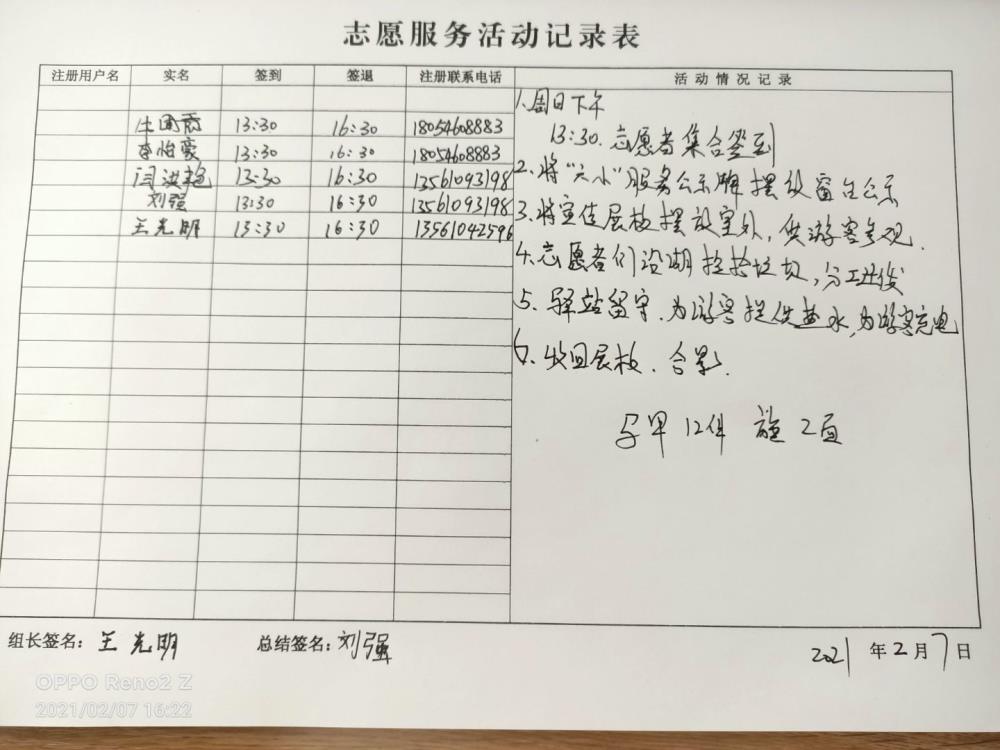 志愿服务活动记录表
注册用户名 实名 签到 签退 注册联系电话 活动情况记录
13:30 16:30 18054608883
李怡豪 13:30 16:30 18054608883
闫洪艳 13:30 16:30 13561093198
刘强 13:30 16:30 13561093198
王光明 13:30 16:30 13561042596
1.周日下午
13:30.志愿者集合签到
2.将“六小”服务公示牌摆放窗台公示
3.将宣传展板摆放室外,供游客参观.
4.志愿者们沿湖捡拾垃圾,分工进
5.驿站留守.为游客提供热水,为游客充电
6.收回展板.合影.
马甲12件 旗2面
组长签名:王光明 总结签名:刘强 2021年2月7日
OPPO Reno2 Z
2021/02/07 16:22